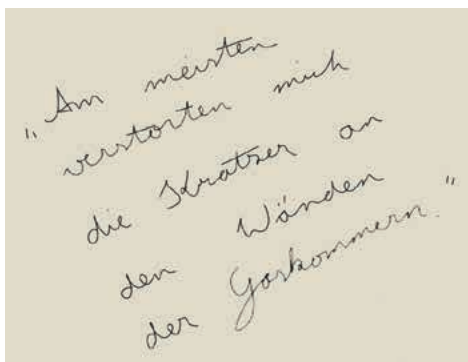 „Am meisten
verstorten mich
die Kratzer an
den Wänden
der Gaskammern."